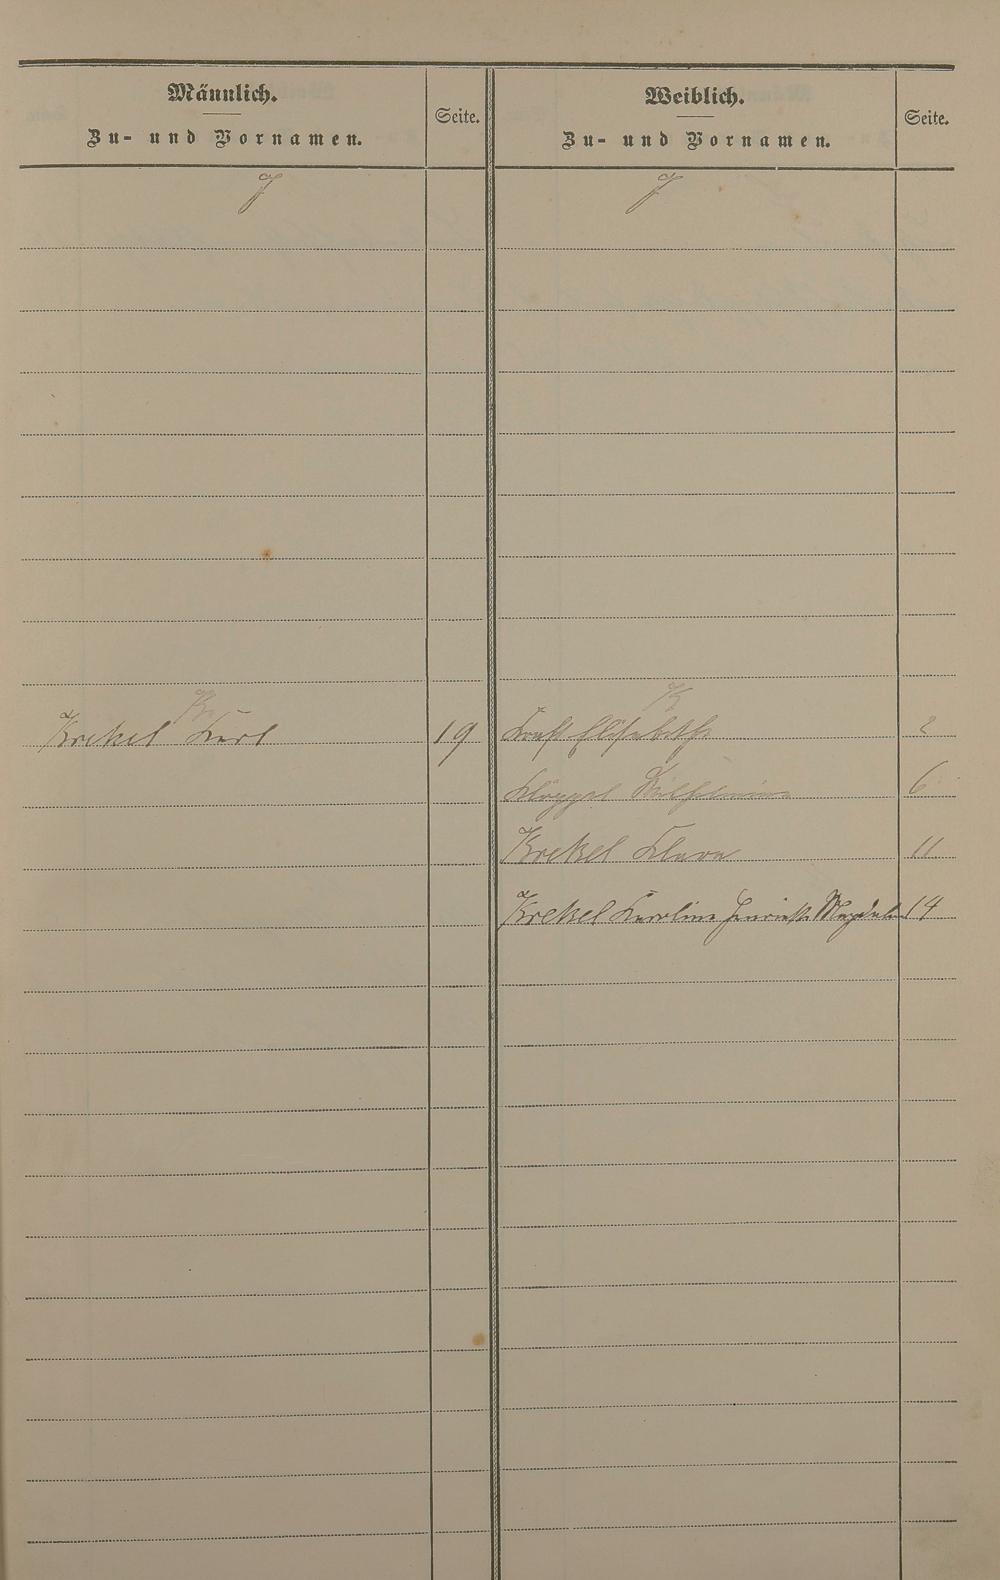 Männlich.
Zu- und Vornamen.
Seite.
Weiblich.
Zu- und Vornamen.
Seite.
J
J
K
K
Krekel Karl 19
Kraft Elisabeth 2
Klöppel Wilhelmine 6
Krekel Klara 11
Krekel Karoline Henriette Magdalena 14